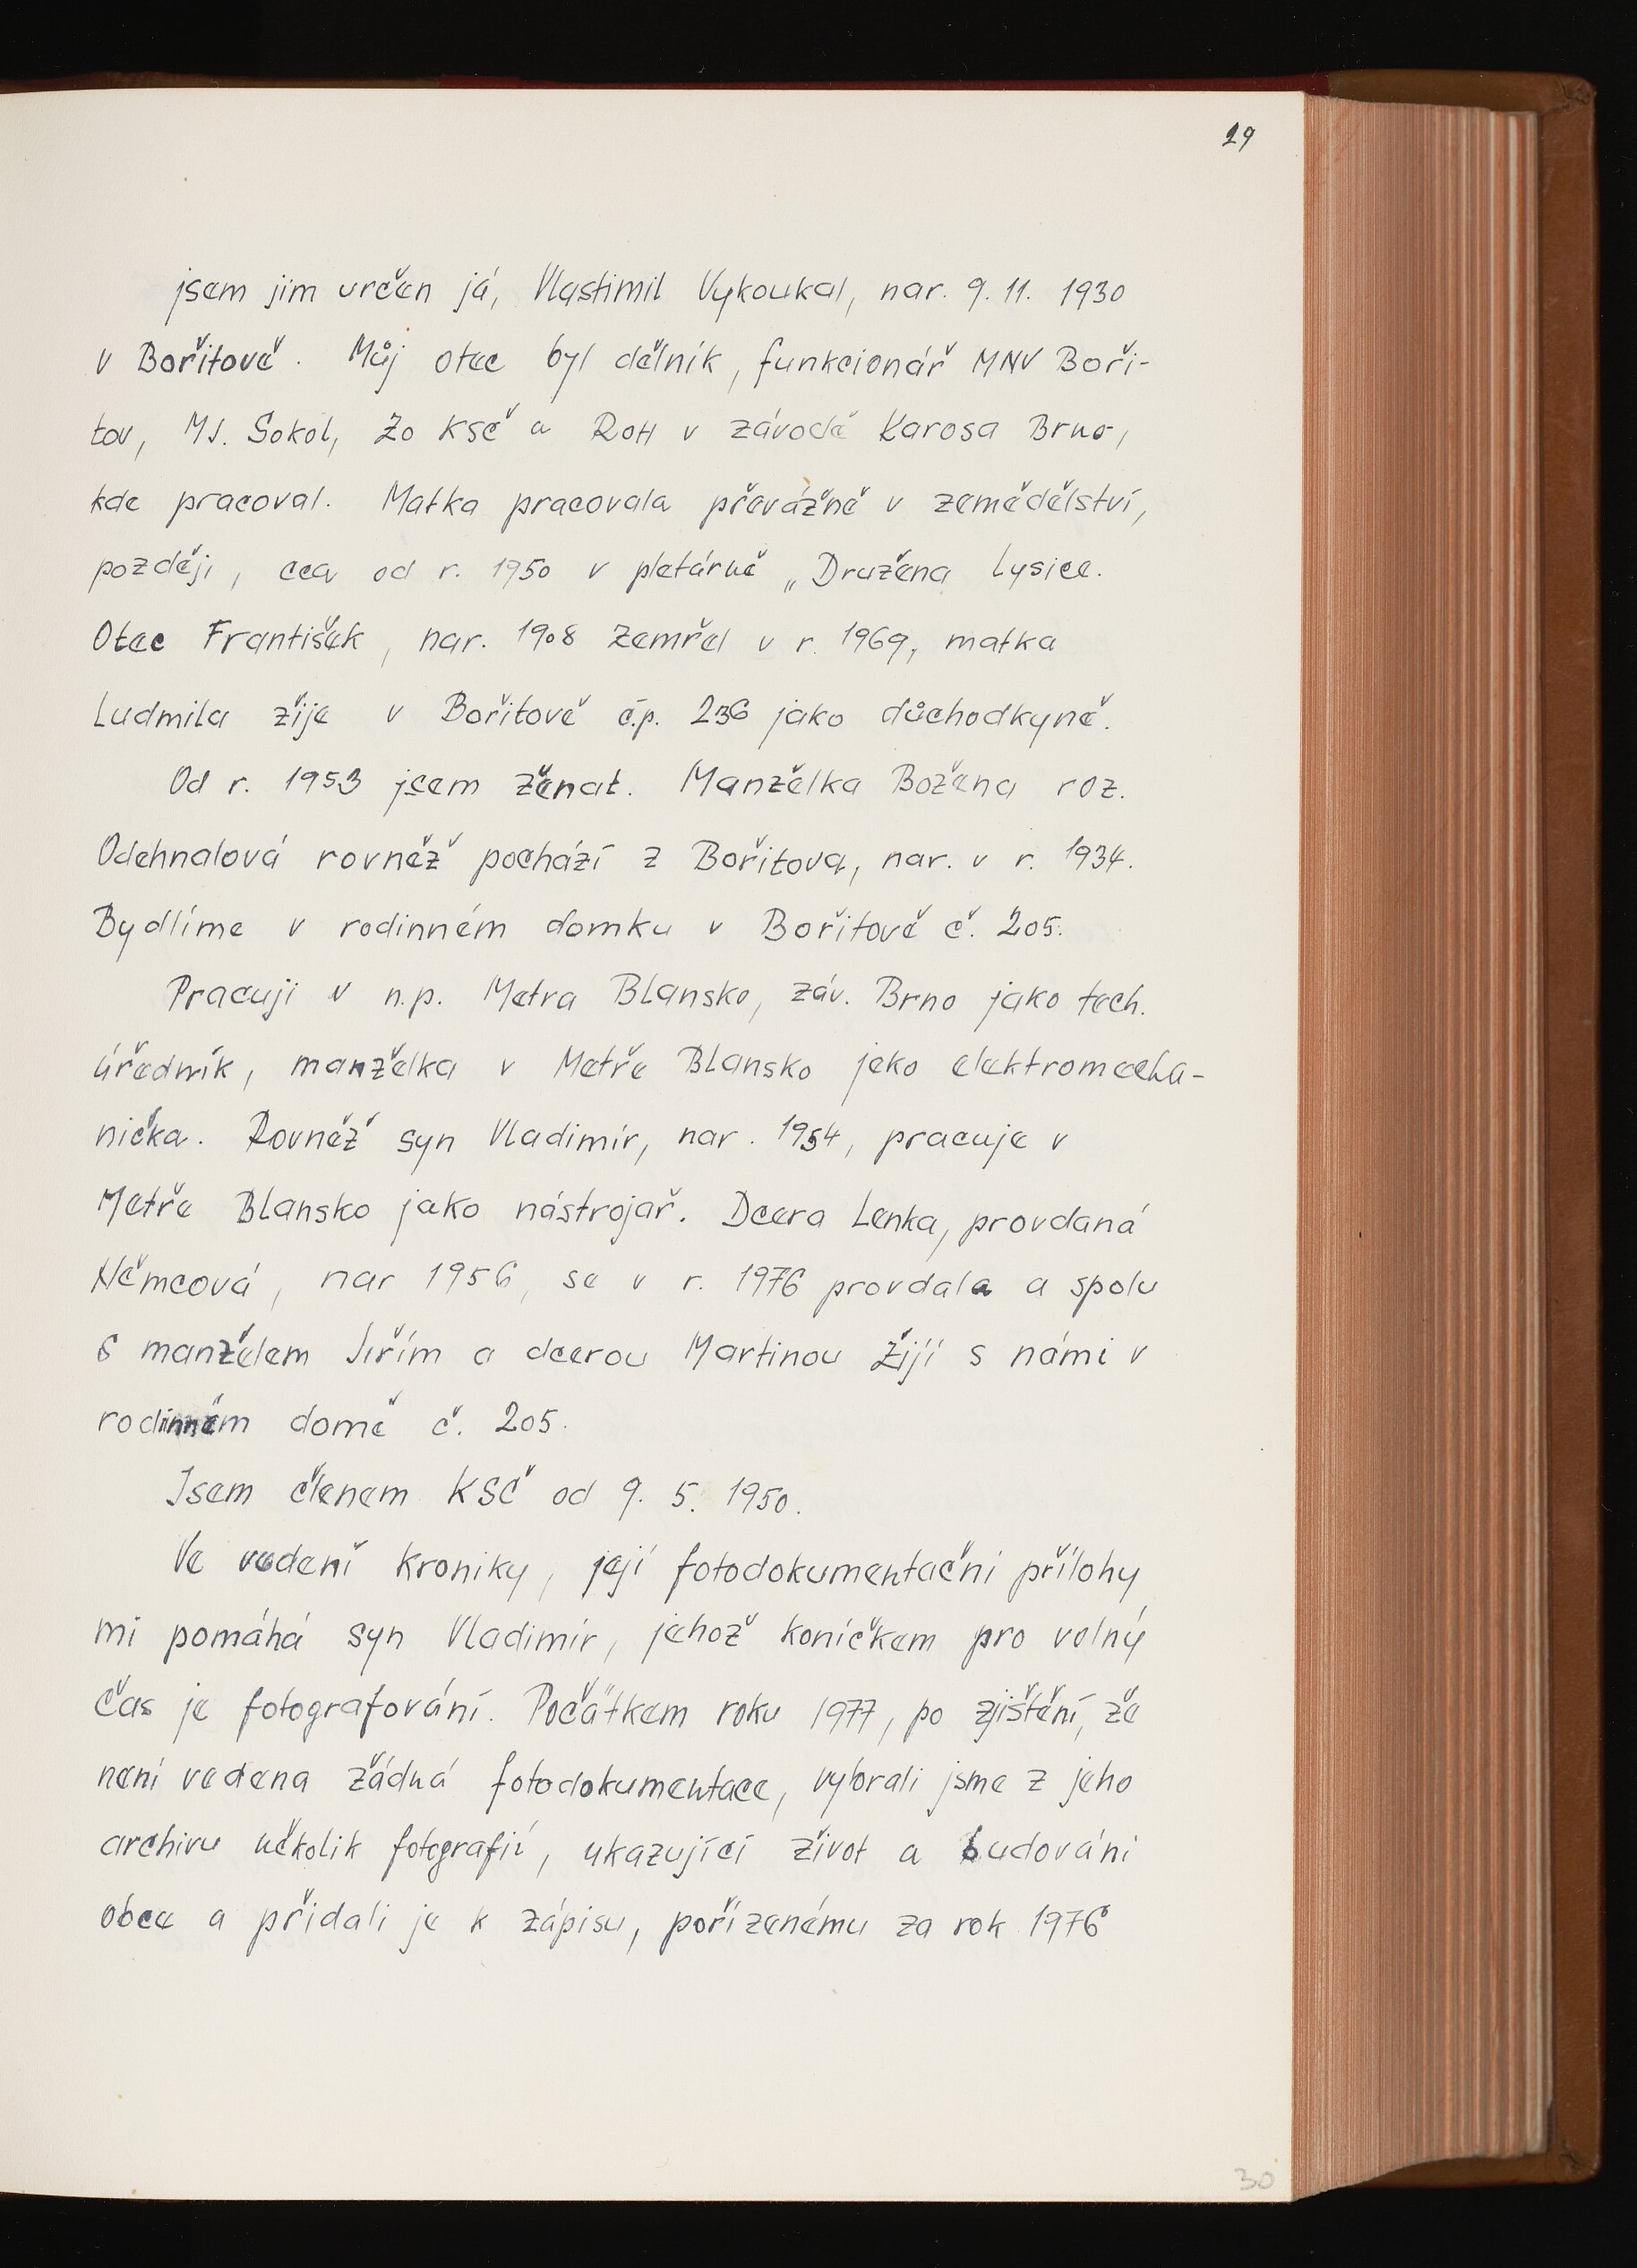 29
jsem jim určen já, Vlastimil Vykoukal, nar. 9. 11. 1930
v Bořitově. Můj otec byl dělník, funkcionář MNV Boři-
tov, MJ. Sokol, Zo KSČ a ROH v závodě Karosa Brno,
kde pracoval. Matka pracovala převážně v zemědělství,
později, cca od r. 1950 v pletárně „Družena Lysice.
Otec František, nar. 1908 zemřel v r. 1969, matka
Ludmila žije v Bořitově č.p. 236 jako důchodkyně.
Od r. 1953 jsem ženat. Manželka Božena roz.
Odehnalová rovněž pochází z Bořitova, nar. v r. 1934.
Bydlíme v rodinném domku v Bořitově č. 205.
Pracuji v n.p. Metra Blansko, záv. Brno jako tech.
úředník, manželka v Metře Blansko jako elektromecha-
nička. Rovněž syn Vladimír, nar. 1954, pracuje v
Metře Blansko jako nástrojař. Dcera Lenka, provdaná
Němcová, nar 1956, se v r. 1976 provdala a spolu
s manželem Jiřím a dcerou Martinou žijí s námi v
rodinném domě č. 205.
Jsem členem KSČ od 9. 5. 1950.
Ve vedení kroniky, její fotodokumentační přílohy
mi pomáhá syn Vladimír, jehož koníčkem pro volný
čas je fotografování. Počátkem roku 1977, po zjištění, že
není vedena žádná fotodokumentace, vybrali jsme z jeho
archivu několik fotografií, ukazující život a budování
obce a přidali je k zápisu, pořízenému za rok 1976
30